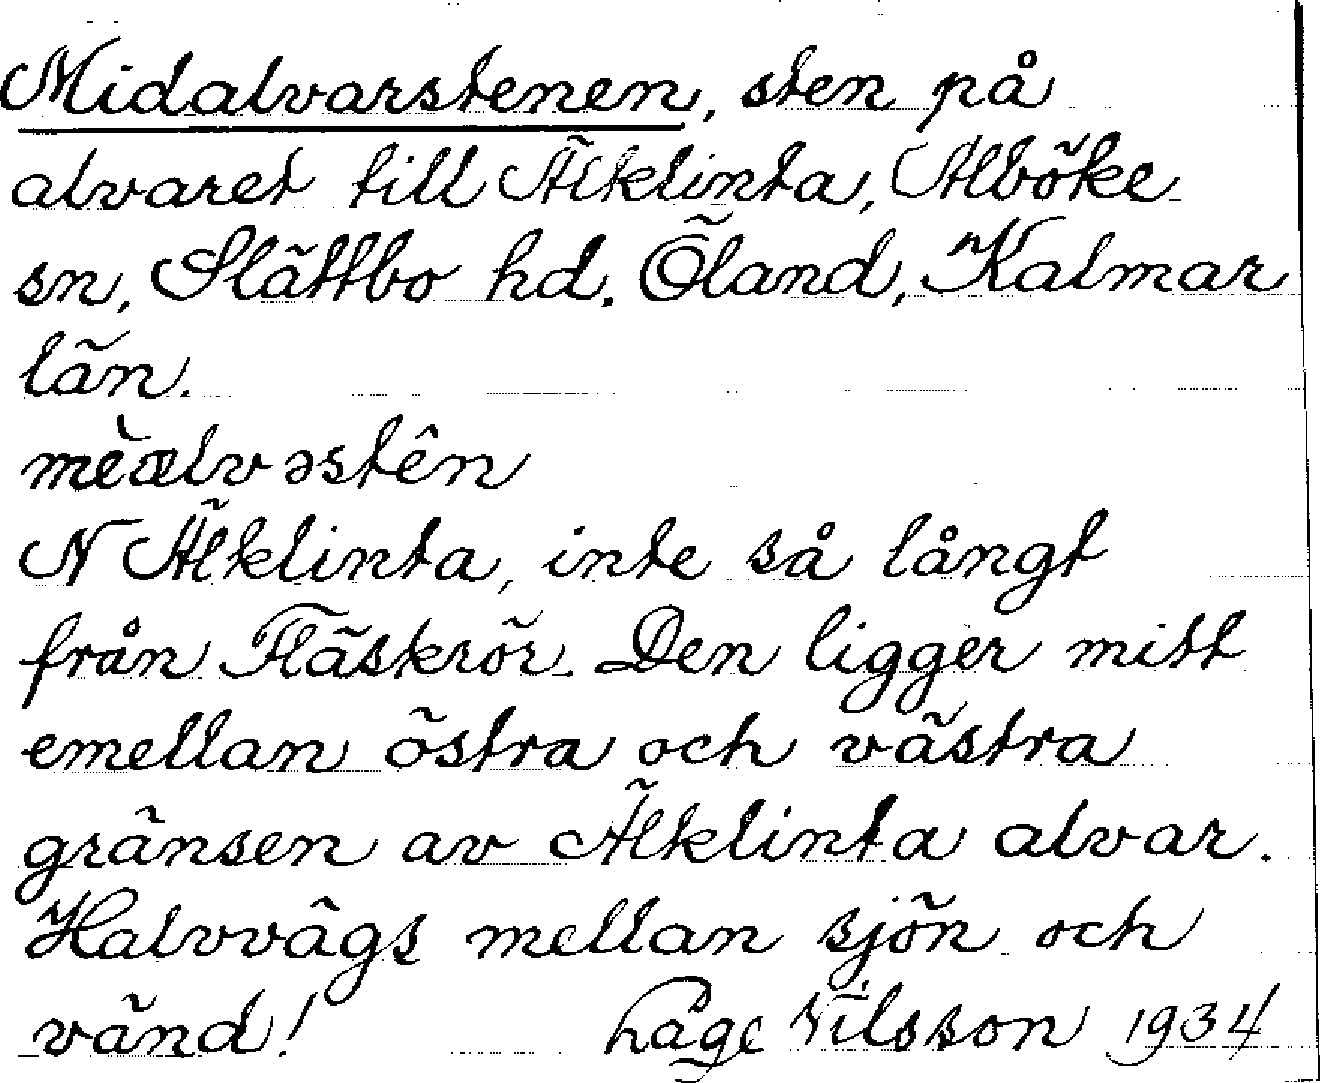 Midalvarstenen, sten på
alvaret till Älklinta, Alböke
sn, Slättbo hd. Öland, Kalmar
län.
mèalvəstên
N Älklinta, inte så långt
från Fläskrör. Den ligger mitt
emellan östra och västra
gränsen av Älklinta alvar.
Halvvägs mellan sjön och
vänd! Låge Nilsson 1934